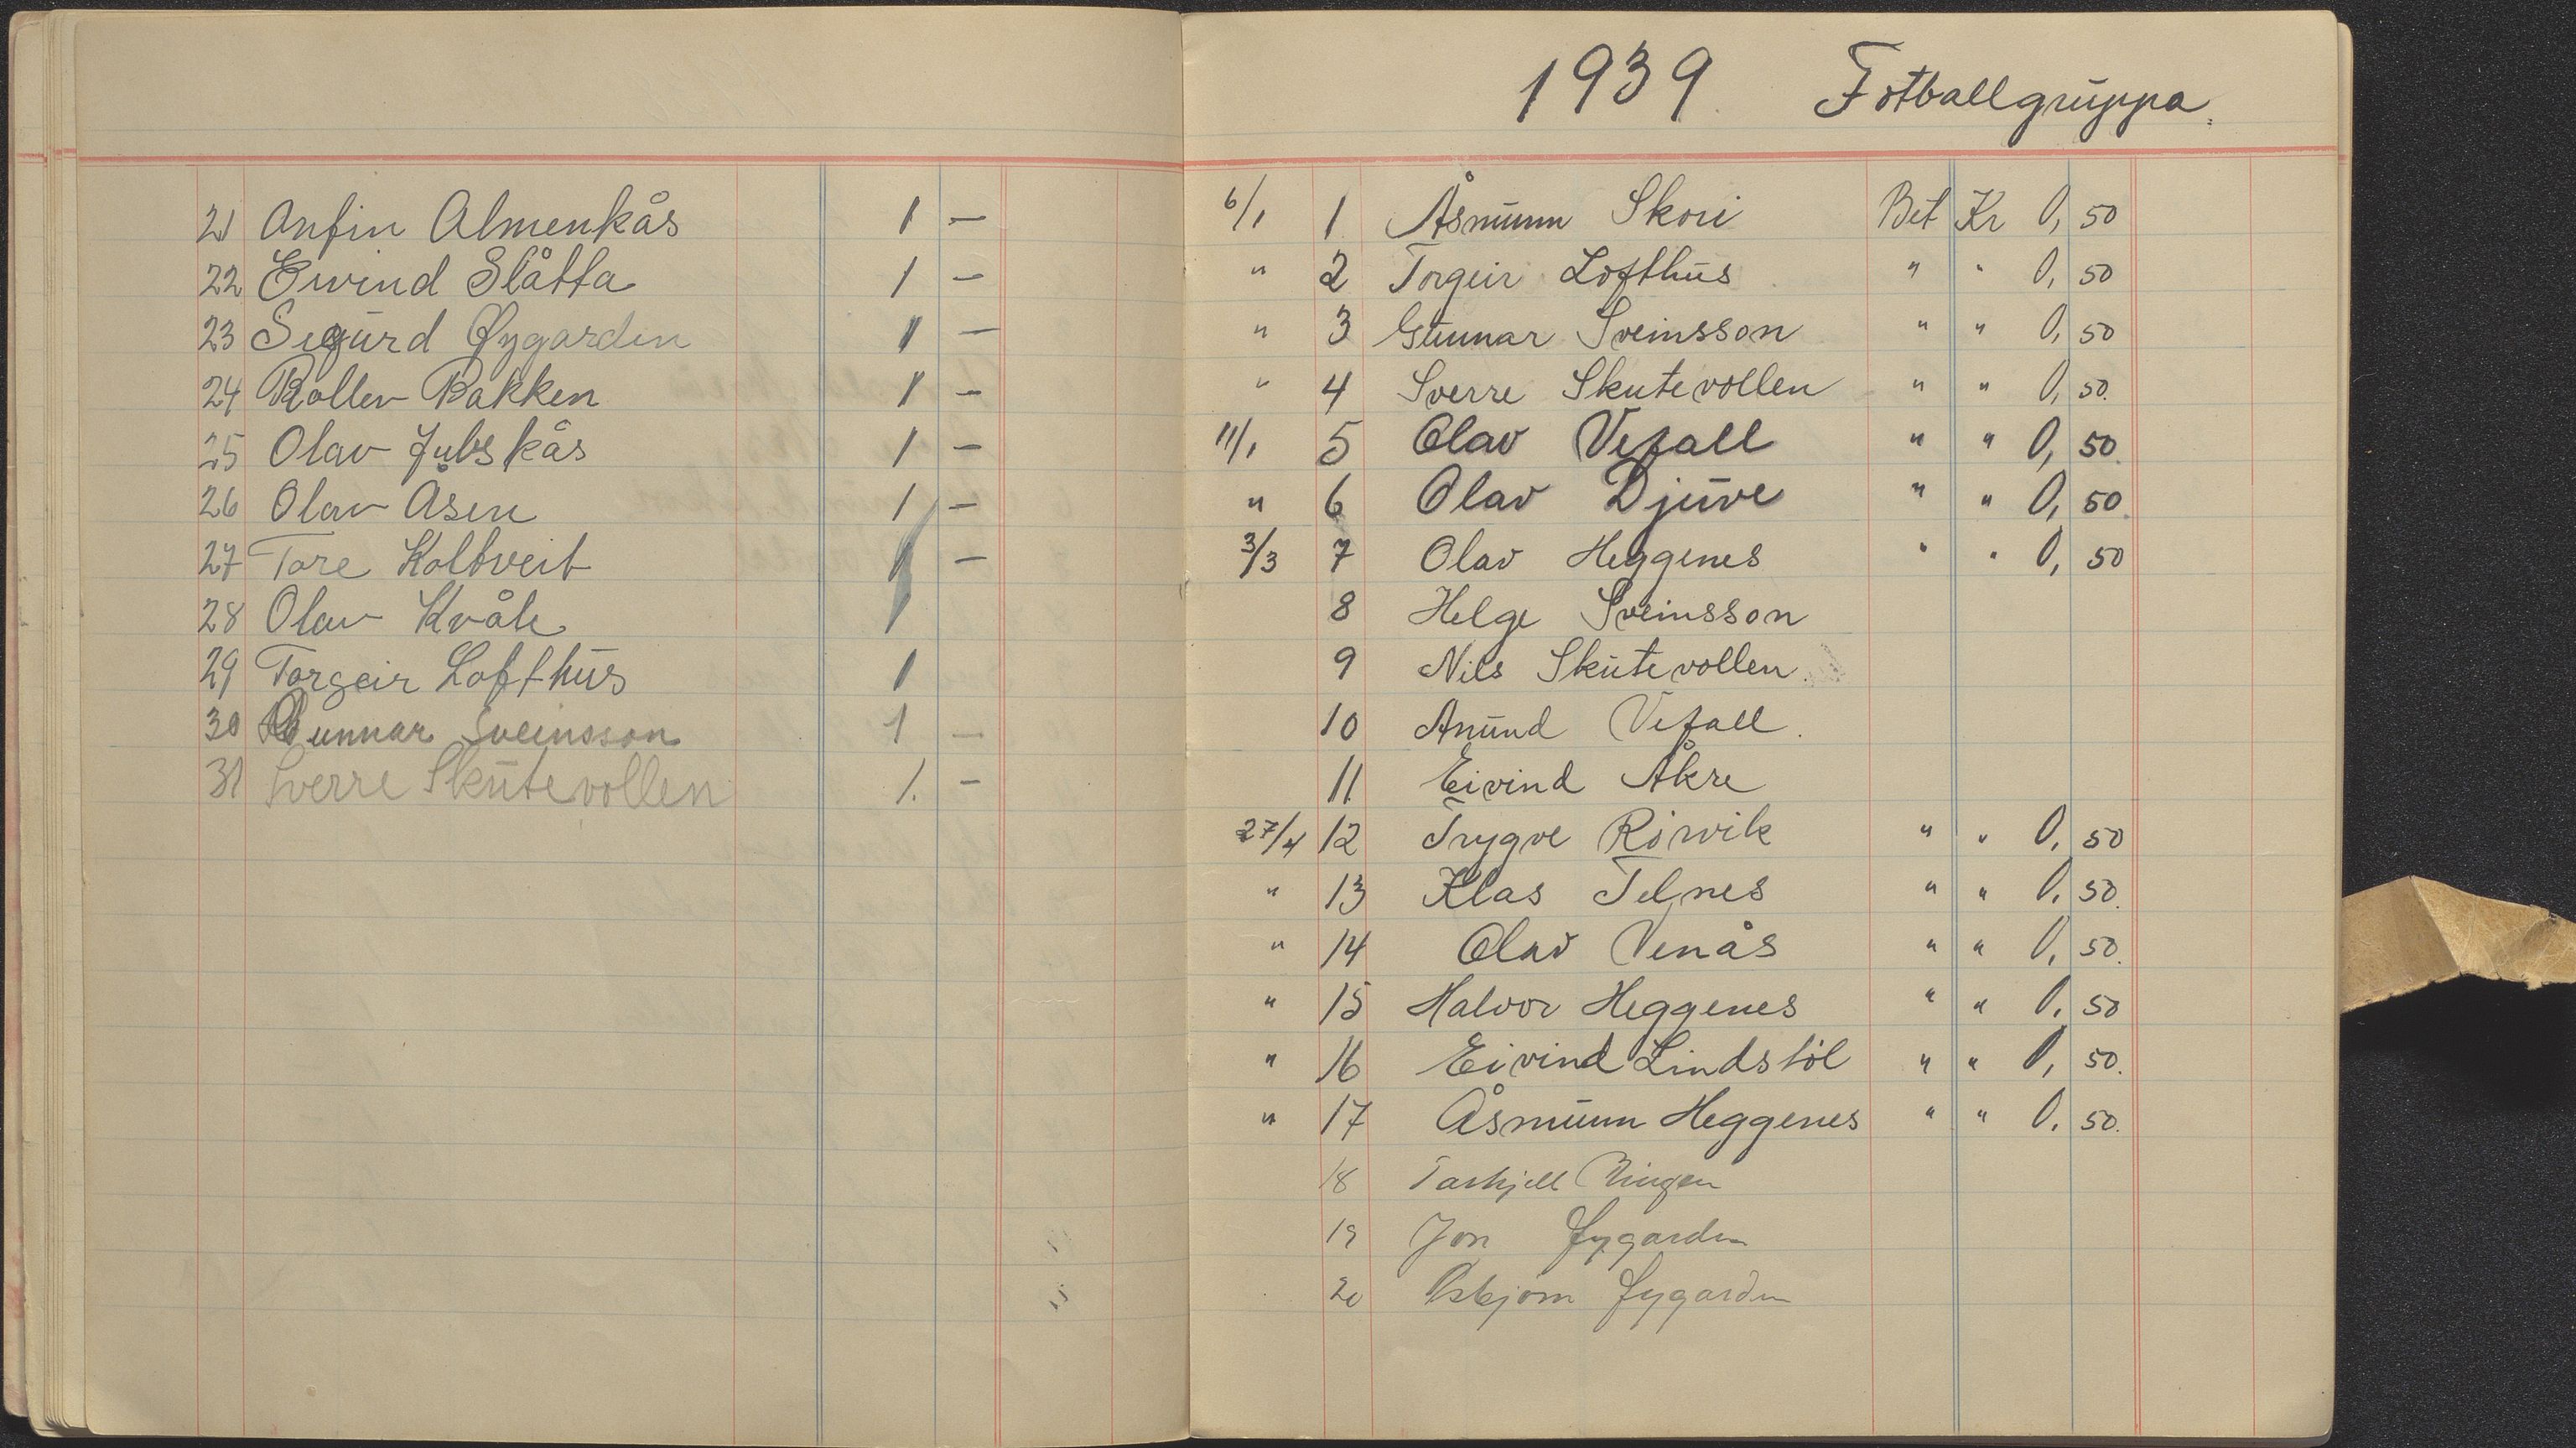 21 Anfin Almenkås 1 —
22 Eivind Slåtta 1 —
23 Sigurd Øygarden 1 —
24 Rollev Bakken 1 —
25 Olav Jubskås 1 —
26 Olav Åsen 1 —
27 Tore Koltveit 1 —
28 Olav Kvåle 1
29 Torgeir Lofthus 1
30 Gunnar Sveinsson 1 —
31 Sverre Skutevollen 1. —
1939. Fotballgruppa.
6/1 1 Åsmunn Skori Bet Kr 0,50
" 2 Torgeir Lofthus " " 0,50
" 3 Gunnar Sveinsson " " 0,50
" 4 Sverre Skutevollen " " 0,50.
11/1 5 Olav Vefall " " 0,50.
" 6 Olav Djuve " " 0,50.
3/3 7 Olav Heggenes " " 0,50
8 Helge Sveinsson
9 Nils Skutevollen.
10 Anund Vefall.
11 Eivind Åkre
27/4 12 Trygve Rörvik " " 0,50
" 13 Klas Telnes " " 0,50.
" 14 Olav Venås " " 0,50.
" 15 Halvor Heggenes " " 0,50
" 16 Eivind Lindstöl " " 0,50.
" 17 Åsmunn Heggenes " " 0,50.
18 Tarkjell Ringen
19 Jon Øygarden
20 Asbjørn Øygarden